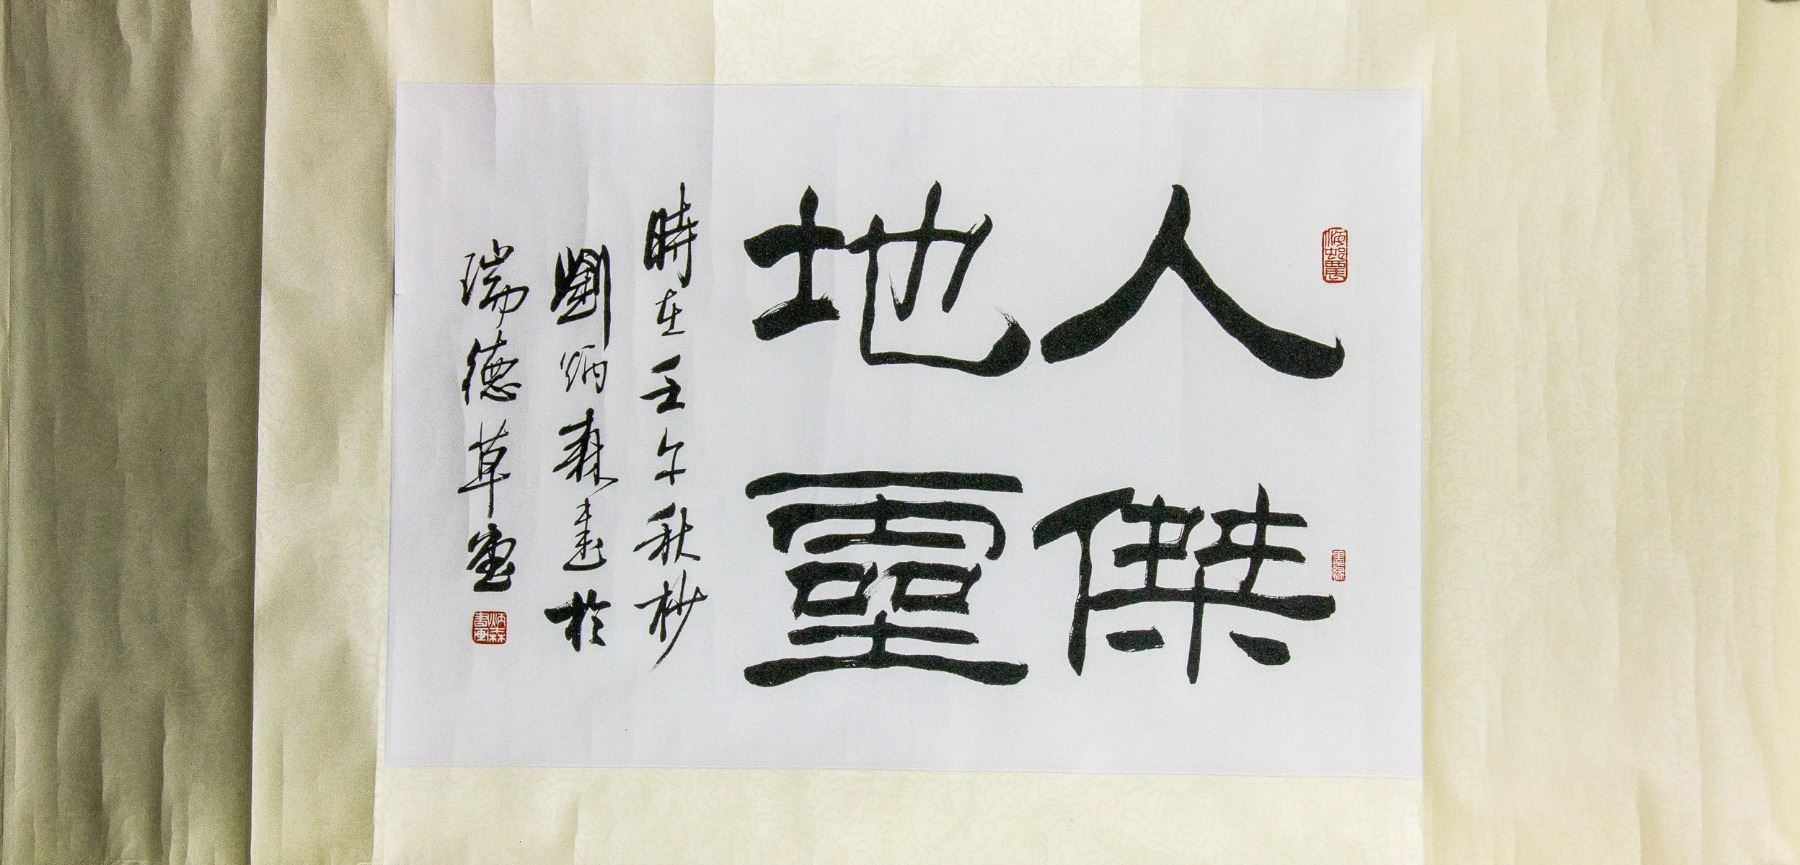 人傑
地靈
時在壬午秋杪
劉炳森書於
瑞德草堂
炳森書画